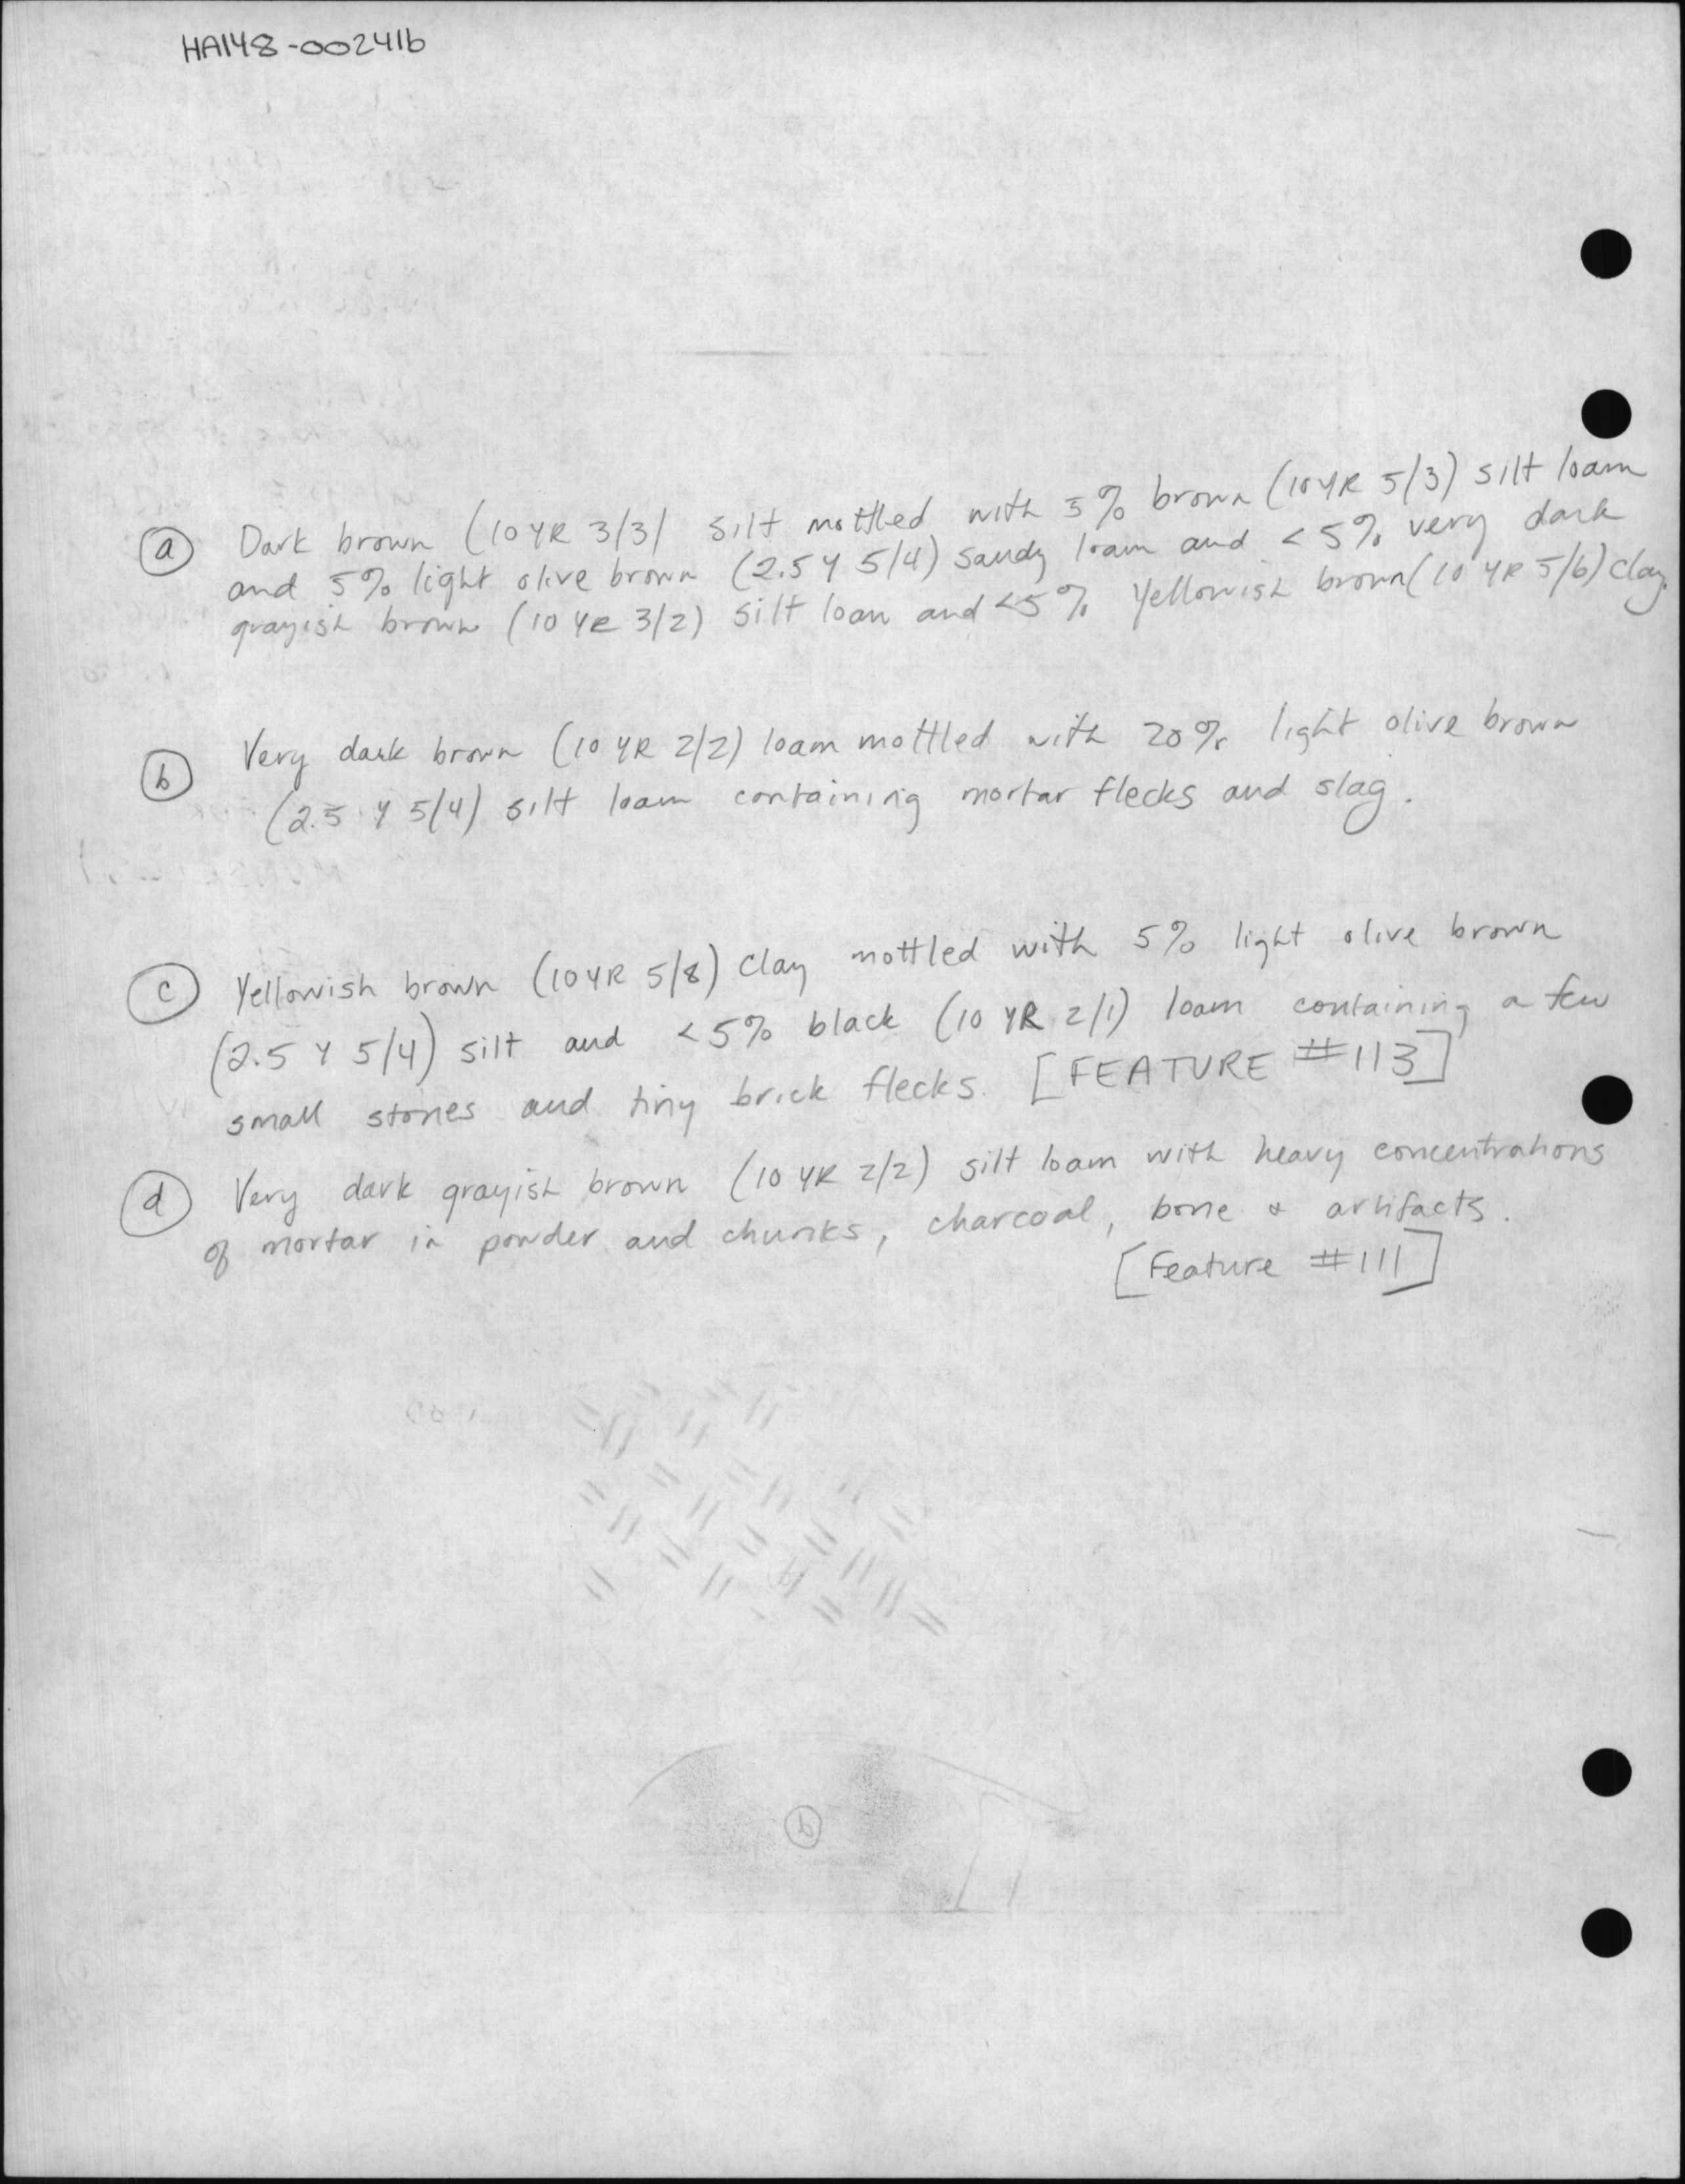 HA148-00241b
ⓐ Dark brown (10 YR 3/3/ silt mottled with 5% brown (10 YR 5/3) silt loam
and 5% light olive brown (2.5 Y 5/4) sandy loam and < 5% very dark
grayish brown (10 YR 3/2) silt loam and <5% Yellowish brown (10 YR 5/6) clay.
ⓑ Very dark brown (10 YR 2/2) loam mottled with 20% light olive brown
(2.5 Y 5/4) silt loam containing mortar flecks and slag.
ⓒ Yellowish brown (10 YR 5/8) clay mottled with 5% light olive brown
(2.5 Y 5/4) silt and < 5% black (10 YR 2/1) loam containing a few
small stones and tiny brick flecks. [FEATURE #113]
ⓓ Very dark grayish brown (10 YR 2/2) silt loam with heavy concentrations
of mortar in powder and chunks, charcoal, bone & artifacts.
[Feature #111]